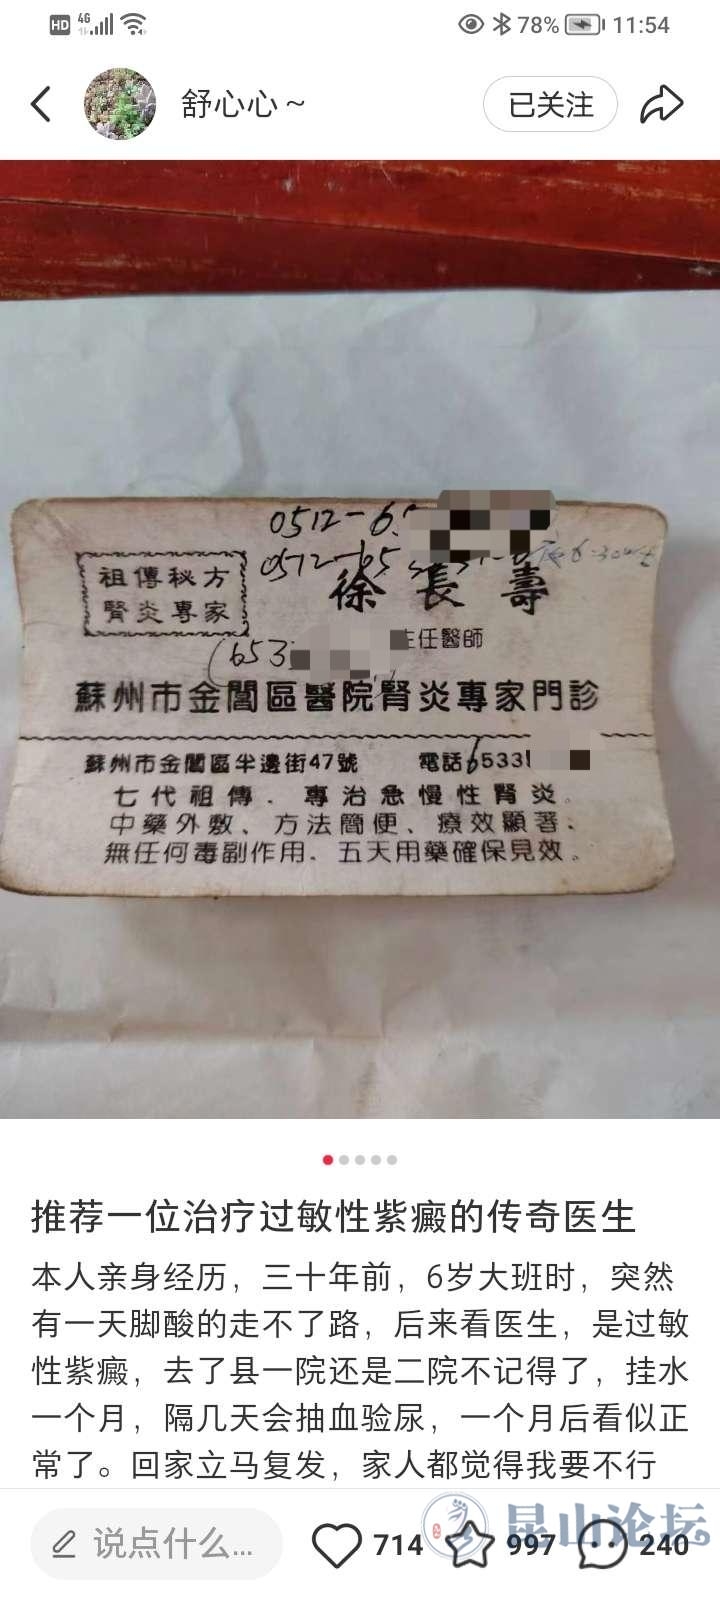 HD 4G 78% 11:54
舒心心~ 已关注
0512-6
0512-65
祖傳秘方
腎炎專家
徐長壽
主任醫師
(653
蘇州市金閶區醫院腎炎專家門診
蘇州市金閶區半邊街47號 電話6533
七代祖傳.專治急慢性腎炎。
中藥外敷、方法簡便、療效顯著、
無任何毒副作用.五天用藥確保見效。
推荐一位治疗过敏性紫癜的传奇医生
本人亲身经历，三十年前，6岁大班时，突然
有一天脚酸的走不了路，后来看医生，是过敏
性紫癜，去了县一院还是二院不记得了，挂水
一个月，隔几天会抽血验尿，一个月后看似正
常了。回家立马复发，家人都觉得我要不行
说点什么... 714 997 240
昆山论坛